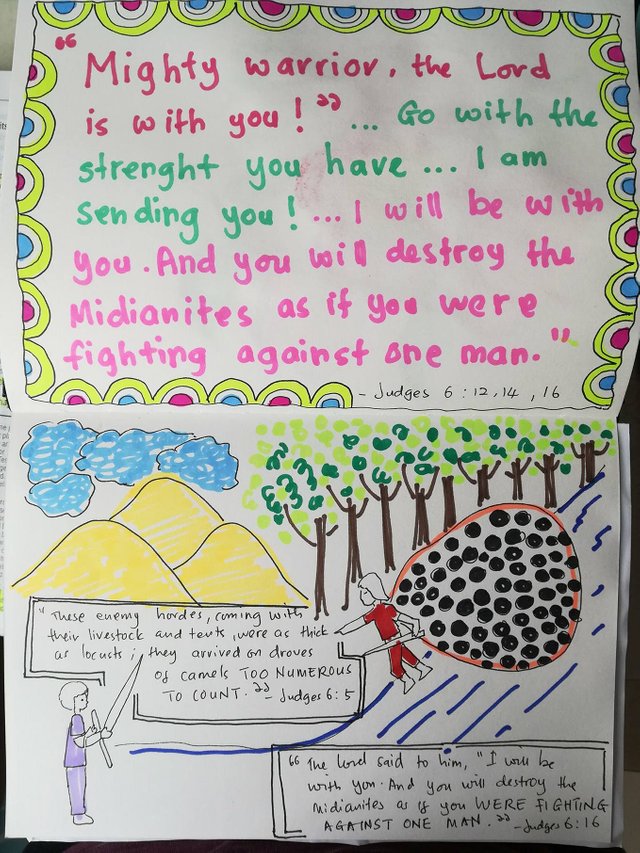 “Mighty warrior, the Lord
is with you!”... Go with the
strenght you have... I am
sending you!...I will be with
you. And you will destroy the
Midianites as if you were
fighting against one man.”
- Judges 6:12,14,16
"These enemy hordes, coming with
their livestock and tents, were as thick
as locusts; they arrived on droves
of camels TOO NUMEROUS
TO COUNT.” - Judges 6:5
“The Lord said to him, "I will be
with you. And you will destroy the
Midianites as if you WERE FIGHTING
AGAINST ONE MAN.” - Judges 6:16